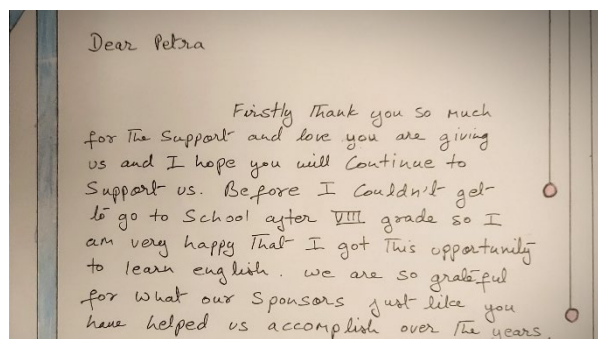 Dear Petra
Firstly Thank you so much
for The Support and love you are giving
us and I hope you will Continue to
Support us. Before I Couldn't get
to go to School after VIII grade so I
am very happy That I got This opportunity
to learn english. we are so grateful
for what our Sponsors just like you
have helped us accomplish over The years.